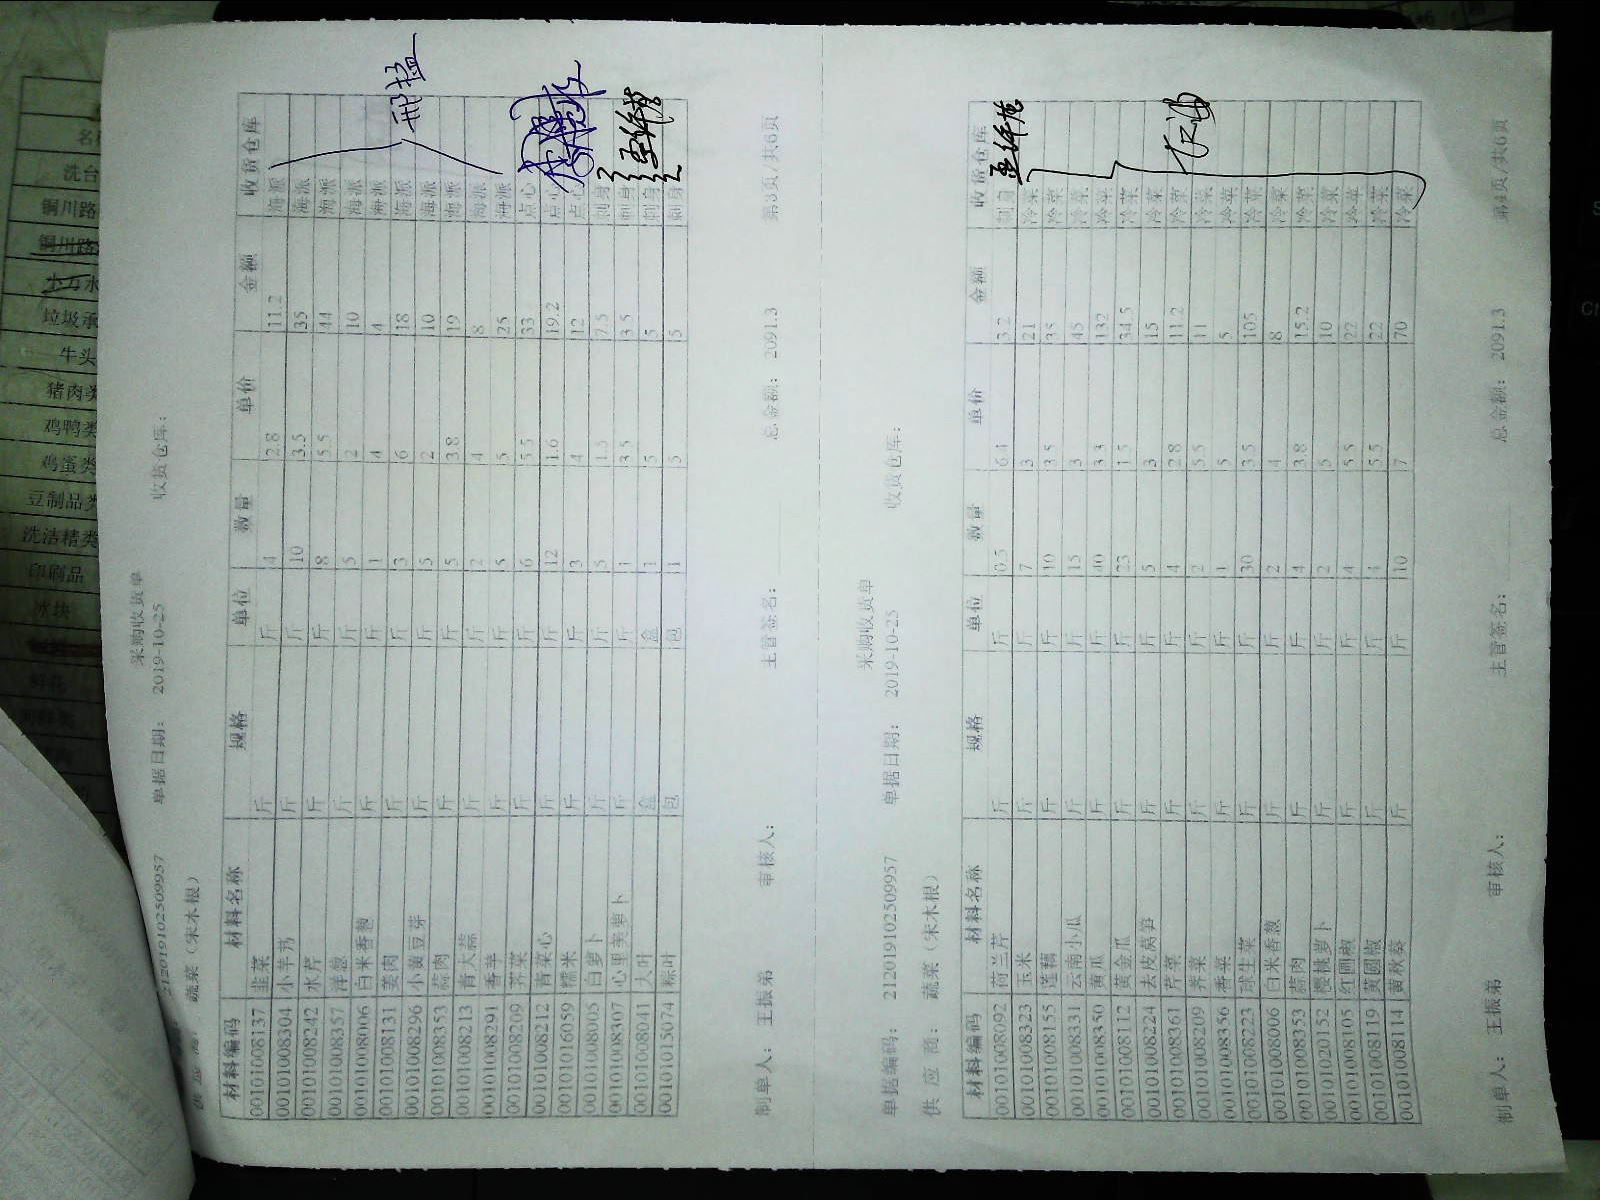 采购收货单
2120191022509957 单据日期: 2019-10-25 收货仓库:
蔬菜（宋木根）
材料编码 材料名称 规格 单位 数量 单价 金额 收货仓库
00101008137 韭菜 斤 斤 4 2.8 11.2 海派
00101008304 小芋艿 斤 斤 10 3.5 35 海派
00101008242 水芹 斤 斤 8 5.5 44 海派
00101008357 洋葱 斤 斤 5 2 10 海派
00101008006 白米香葱 斤 斤 1 4 4 海派
00101008131 姜肉 斤 斤 3 6 18 海派
00101008296 小黄豆芽 斤 斤 5 2 10 海派
00101008353 蒜肉 斤 斤 5 3.8 19 海派
00101008213 青大蒜 斤 斤 2 4 8 海派
00101008291 香芋 斤 斤 5 5 25 海派
00101008209 荠菜 斤 斤 6 5.5 33 点心
00101008212 青菜心 斤 斤 12 1.6 19.2 点心
00101016059 糯米 斤 斤 3 4 12 点心
00101008005 白萝卜 斤 斤 5 1.5 7.5 刺身
00101008307 心里美萝卜 斤 斤 1 3.5 3.5 刺身
00101008041 大叶 盒 盒 1 5 5 刺身
00101015074 粽叶 包 包 1 5 5 刺身
制单人: 王振弟 审核人: 主管签名: 总金额: 2091.3 第3页/共6页
采购收货单
单据编码: 2120191022509957 单据日期: 2019-10-25 收货仓库:
供应商: 蔬菜（宋木根）
材料编码 材料名称 规格 单位 数量 单价 金额 收货仓库
00101008092 荷兰芹 斤 斤 0.5 6.4 3.2 刺身
00101008323 玉米 斤 斤 7 3 21 冷菜
00101008155 莲藕 斤 斤 10 3.5 35 冷菜
00101008331 云南小瓜 斤 斤 15 3 45 冷菜
00101008350 黄瓜 斤 斤 40 3.3 132 冷菜
00101008112 黄金瓜 斤 斤 23 1.5 34.5 冷菜
00101008224 去皮莴笋 斤 斤 5 3 15 冷菜
00101008361 芹菜 斤 斤 4 2.8 11.2 冷菜
00101008209 荠菜 斤 斤 2 5.5 11 冷菜
00101008336 香菜 斤 斤 1 5 5 冷菜
00101008223 球生菜 斤 斤 30 3.5 105 冷菜
00101008006 白米香葱 斤 斤 2 4 8 冷菜
00101008353 蒜肉 斤 斤 4 3.8 15.2 冷菜
00101020152 樱桃萝卜 斤 斤 2 5 10 冷菜
00101008105 红圆椒 斤 斤 4 5.5 22 冷菜
00101008119 黄圆椒 斤 斤 4 5.5 22 冷菜
00101008114 黄秋葵 斤 斤 10 7 70 冷菜
制单人: 王振弟 审核人: 主管签名: 总金额: 2091.3 第4页/共6页
洗台
铜川路
铜川路
垃圾承
牛头
猪肉类
鸡鸭类
鸡蛋类
豆制品类
洗洁精类
印刷品
冰块
鲜花